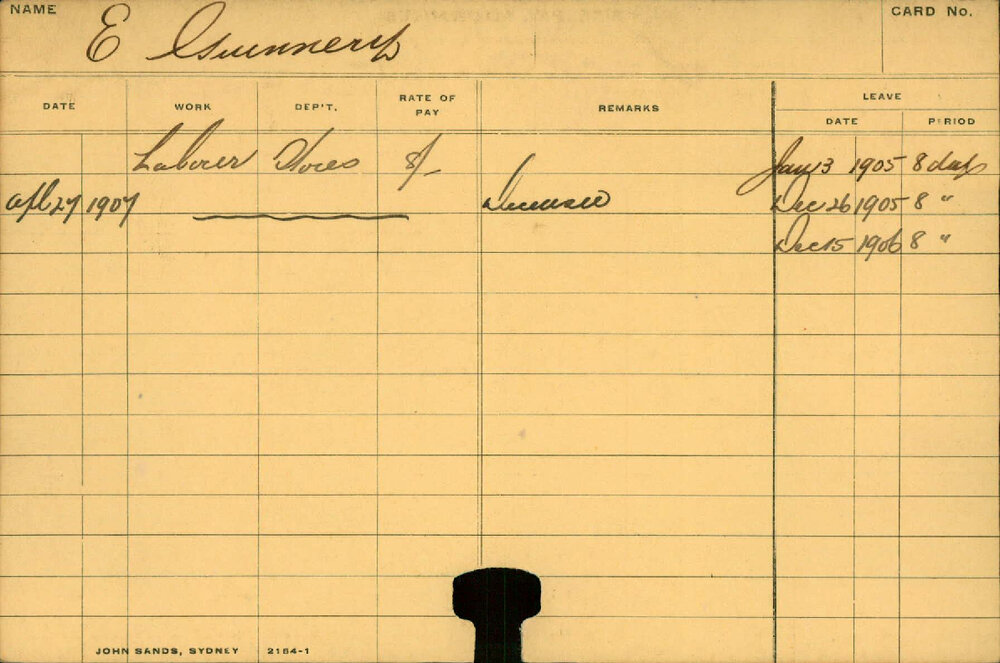 NAME E Gunnery CARD No.
LEAVE
DATE WORK DEP'T. RATE OF PAY REMARKS DATE PERIOD
Laborer Stores 8/- Jan 13 1905 8 days
Apl 27 1907 Deceased Dec 26 1905 8 "
Dec 15 1906 8 "
JOHN SANDS, SYDNEY 2184-1